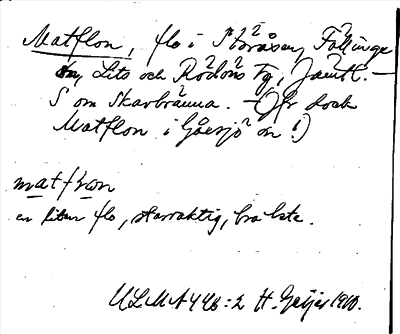 Matflon, flo i Storåsen, Föllinge
sn, Lits och Rödöns tg, Jämtl. —
S om Skarbränna. — (Jfr dock
Matflon i Gåxsjö sn!)
matfløn
en liten flo, starraktig, bra bete.
ULMA 446:2 H. Geijer 1910.